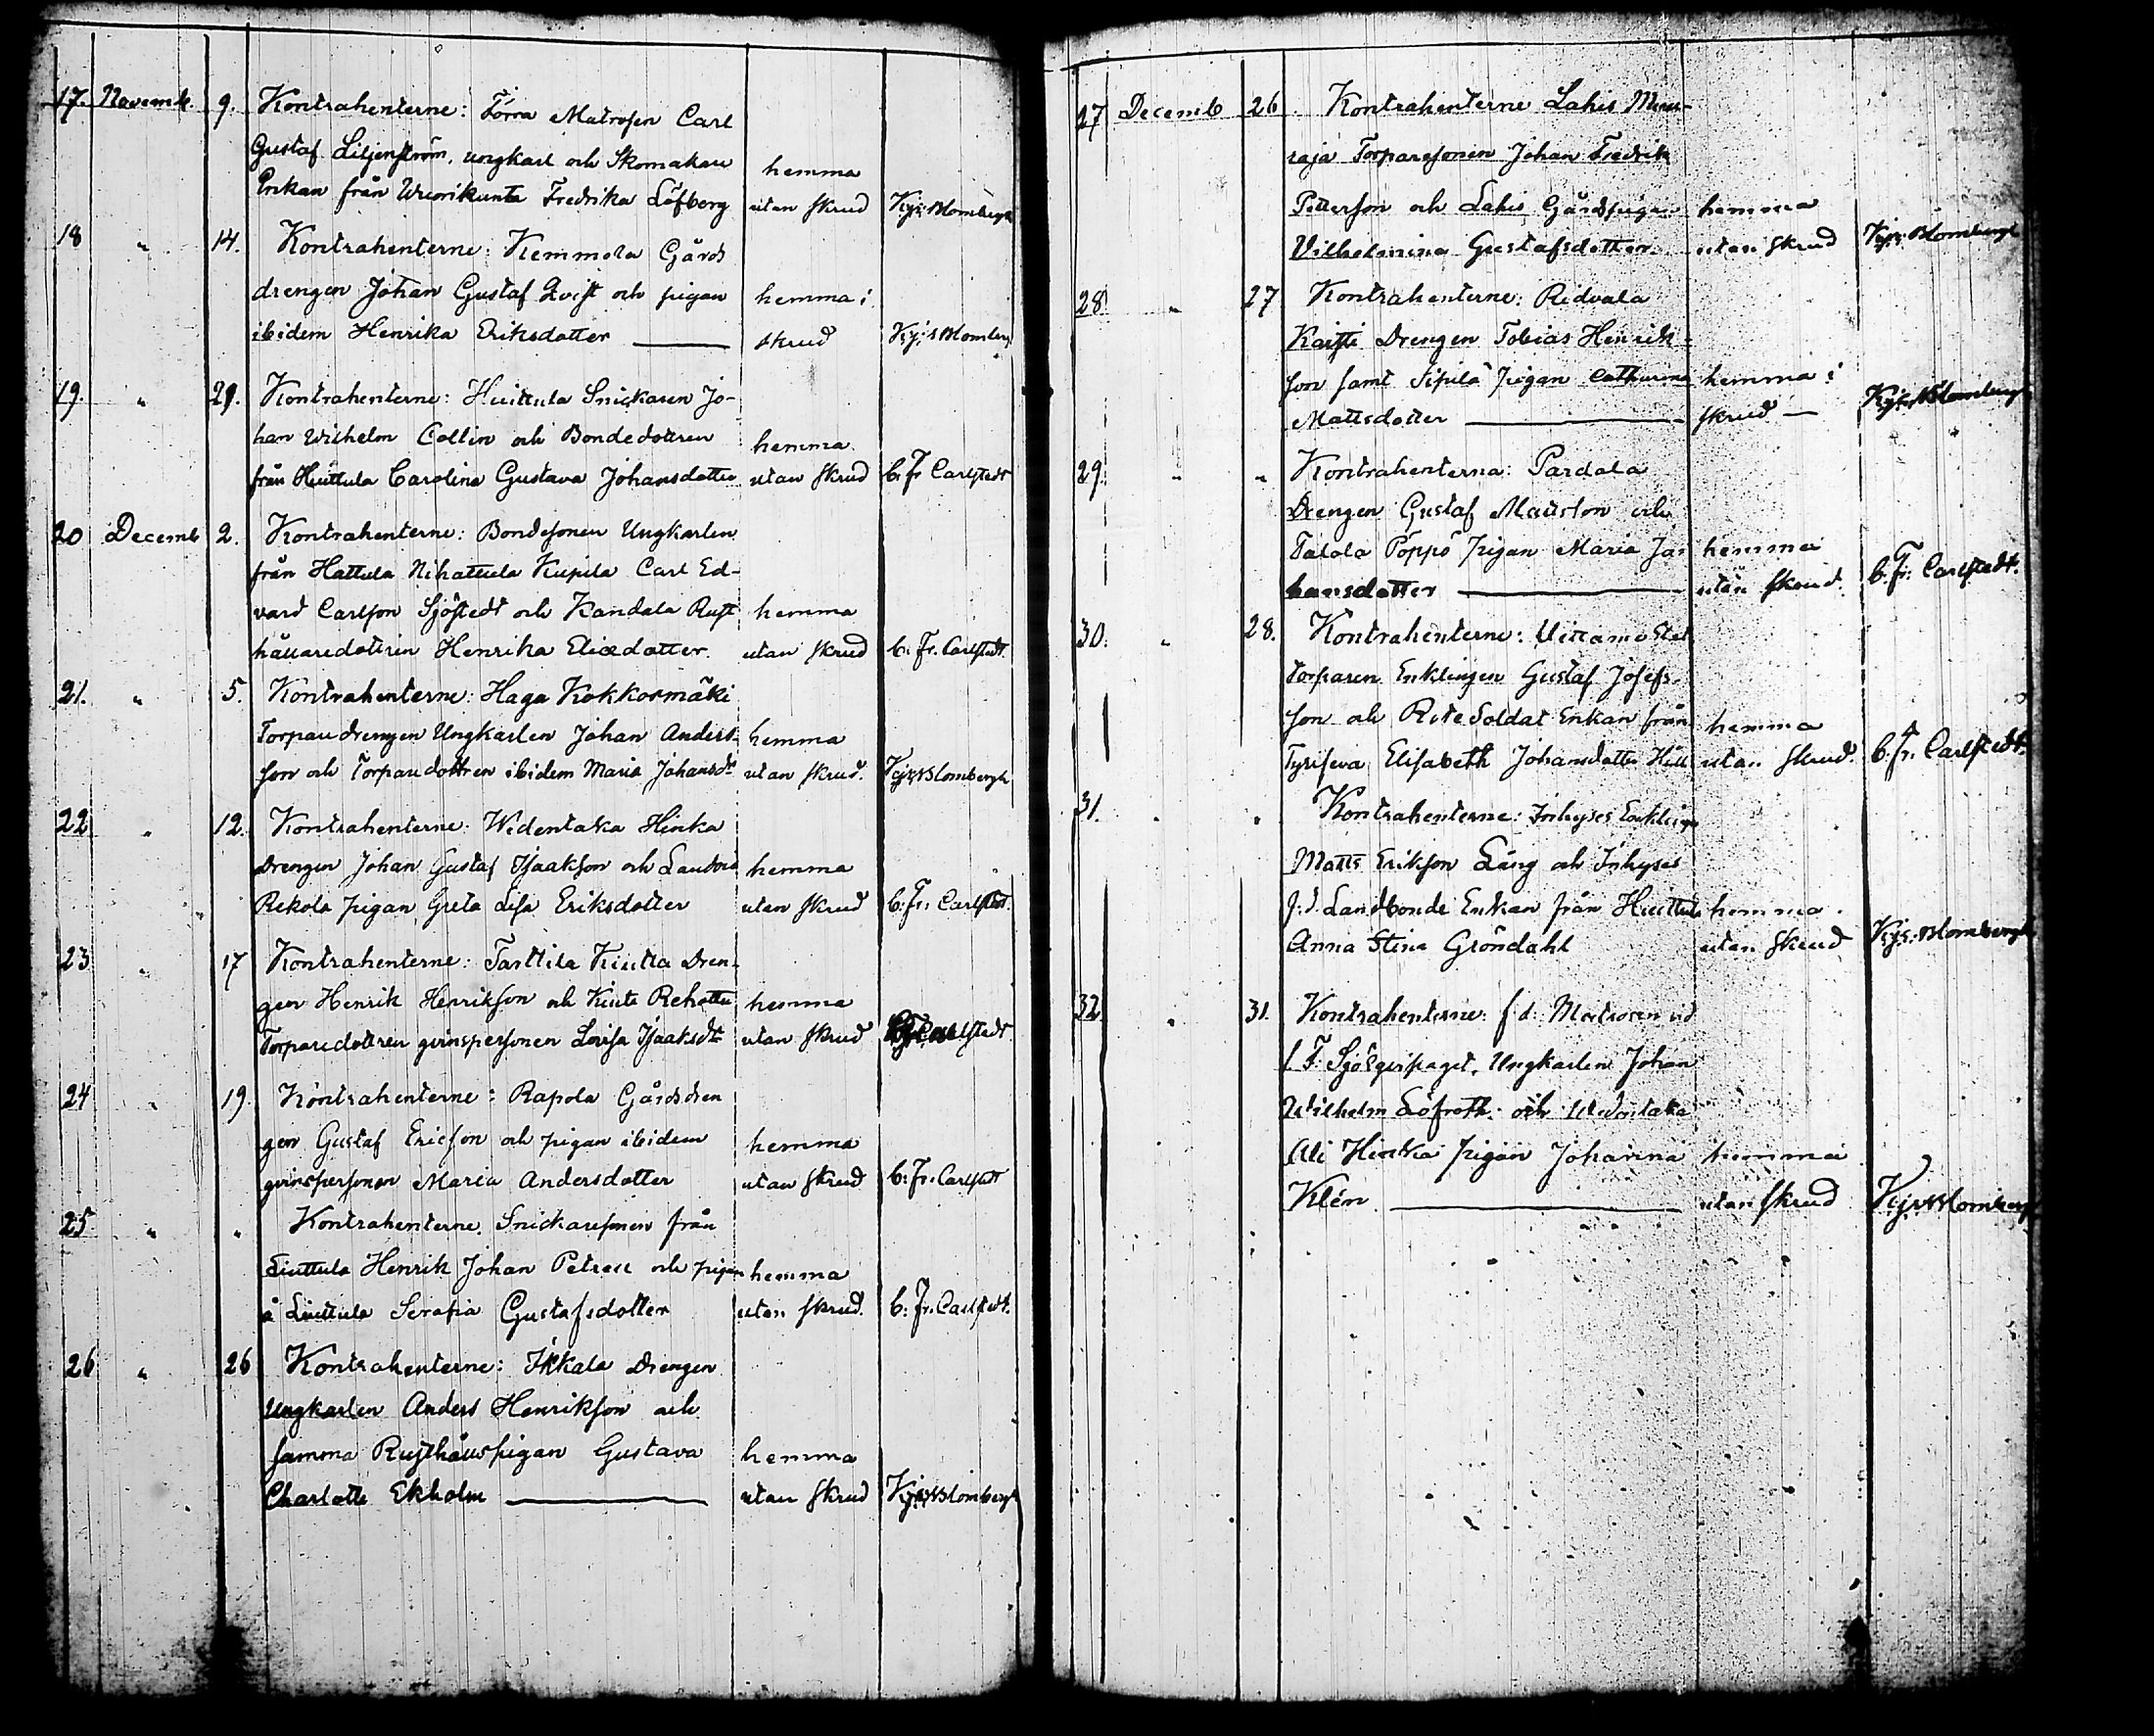 17. Novemb. 9. Kontrahenterne: Förra Matrosen Carl
Gustaf Liljenström, ungkarl och Skomakare hemma
Enkan från Fredrika Löfberg utan skrud Kyr: Blombergh
18 " 14. Kontrahenterne: Kemmola Gårds
drengen Johan Gustaf Qvist och pigan hemma i
ibidem Henrika Eriksdotter — skrud Kyr: Blombergh
19. " 29. Kontrahenterne: Huittula Snickaren Jo-
han Wilhelm Collin och Bondedottren hemma
från Huittula Carolina Gustava Johansdotter utan skrud C. Fr Carlstedt
20 Decemb 2. Kontrahenterne: Bondesonen Ungkarlen
från Hattula Nihattula Carl Ed-
vard Carlson Sjöstedt och Kandala Rust hemma
hållaredottren Henrika Eliædotter utan skrud C. Fr. Carlstedt
21. " 5. Kontrahenterne: Haga Kokkormäki
Torparedrengen Ungkarlen Johan Anders- hemma
son och Torparedottren ibidem Maria Johansdr utan skrud. Kyr: Blombergh
22 " 12. Kontrahenterne: Widentaka Hinka
Drengen Johan Gustaf Isaakson och hemma
Rekola pigan Greta Lisa Eriksdotter utan skrud C. Fr. Carlstedt.
23 " 17 Kontrahenterne: Tarttila Kiutta Dren-
gen Henrik Henrikson och Rehottu hemma
Torparedottren qvinspersonen Lovisa Isaaksdtr utan skrud C Fr Carlstedt
24 " 19. Kontrahenterne: Rapola Gårdsdren
gen Gustaf Ericson och pigan ibidem hemma
qvinspersonen Maria Andersdotter utan skrud C. Fr. Carlstedt
25 " " Kontrahenterne. Snickaresonen från
Liuttula Henrik Johan Petrell och pigan hemma
å Liuttula Serafia Gustafsdotter utan skrud. C. Fr. Carlstedt.
26 " 26 Kontrahenterne: Ikkala Drengen
Ungkarlen Anders Henrikson och
samma Rusthållspigan Gustava hemma
Charlotta Ekholm — utan skrud Kyr: Blombergh
27 Decemb 26. Kontrahenterne Lahis
raja Torparesonen Johan Fredrik
Petterson och Lahis Gårdspigan hemma
Vilhelmina Gustafsdotter utan skrud Kyr: Blombergh
28. " 27 Kontrahenterne: Ridvala
Kaisti Drengen Tobias Henrik-
son samt Sipilä pigan Catharina hemma i
Mattsdotter — skrud — Kyr: Blombergh
29. " " Kontrahenterna: Pardala
Drengen Gustaf och
Talola Pöppö pigan Maria Jo- hemma
hansdotter — utan skrud. C. Fr. Carlstedt.
30. " 28. Kontrahenterne: Uittamo
torparen Enklingen Gustaf Josefs-
son och Rote Soldat Enkan från hemma
Elisabeth Johansdotter Häll utan skrud. C. Fr. Carlstedt.
31. " " Kontrahenterne: Inhyses Enklingen
Matts Erikson Lång och Inhyses
f. d. Landbonde Enkan från Huittula hemma
Anna Stina Gröndahl utan skrud Kyr: Blombergh
32. " 31. Kontrahenterne: f: d: Matrosen vid
Ungkarlen Johan
Wilhelm Löfroth och Widentaka
Ali Hinkka pigan Johanna hemma
Klén. — utan skrud Kyr: Blombergh